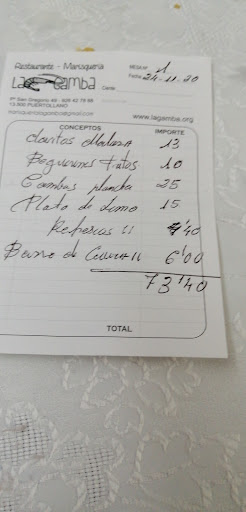 Restaurante - Marisquería
La Gamba
MESA Nº 1
Fecha 24-11-20
Cante
Pº San Gregorio 49 - 926 42 79 66
13.500 PUERTOLLANO
www.lagamba.org
CONCEPTOS IMPORTE
13
10
Gambas plancha 25
Plato de Lomo 15
Refrescos 11 4'40
6'00
73'40
TOTAL